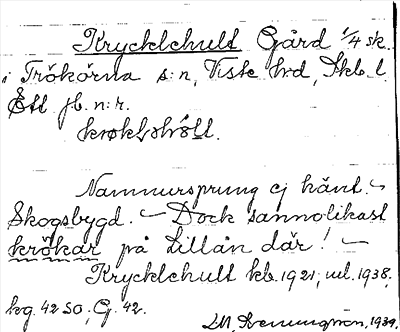 Krycklehult Gård 1/4 sk.
i Trökörna s:n, Viste hrd, Skb. l.
Ett jb. n:r.
krøklhølt.
Namnursprung ej känt.
Skogsbygd. — Dock sannolikast
krökar på Lillån där! —
Krycklehult kb. 1921, uul. 1938,
kg. 42 SO, G. 42.
1939.